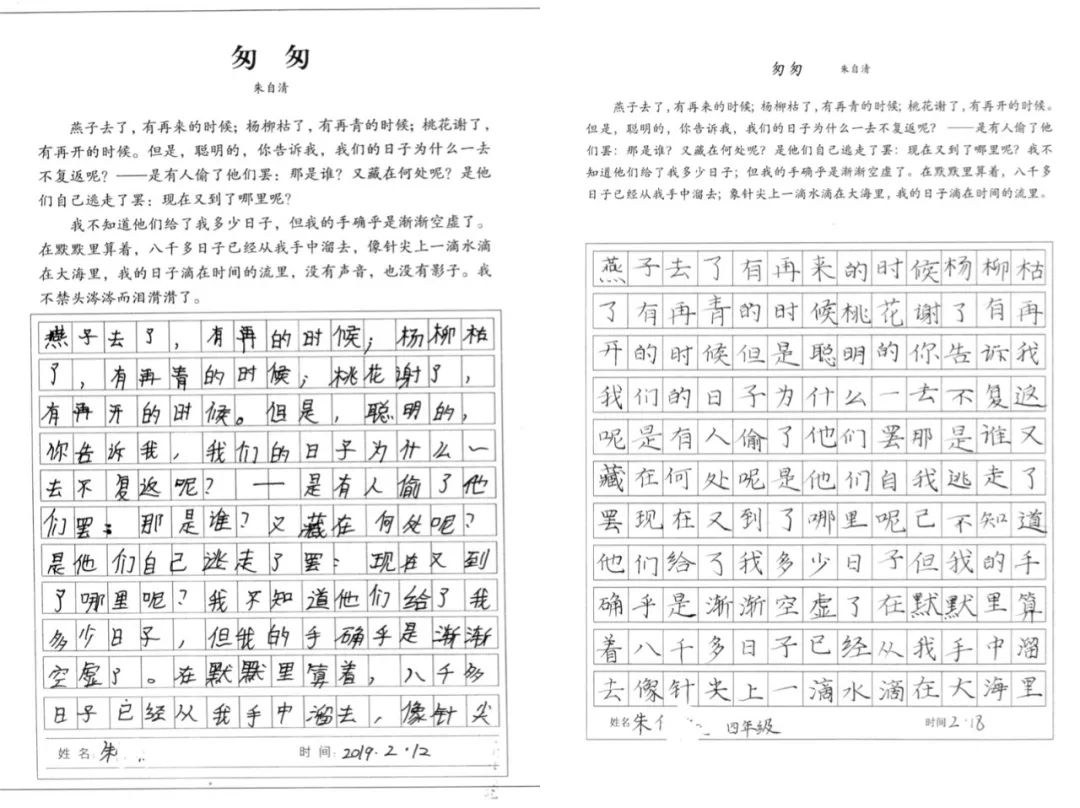 匆 匆
朱自清
燕子去了，有再来的时候；杨柳枯了，有再青的时候；桃花谢了，
有再开的时候。但是，聪明的，你告诉我，我们的日子为什么一去
不复返呢？——是有人偷了他们罢：那是谁？又藏在何处呢？是他
们自己逃走了罢：现在又到了哪里呢？
我不知道他们给了我多少日子，但我的手确乎是渐渐空虚了。
在默默里算着，八千多日子已经从我手中溜去，像针尖上一滴水滴
在大海里，我的日子滴在时间的流里，没有声音，也没有影子。我
不禁头涔涔而泪潸潸了。
燕子去了，有再的时候；杨柳枯
了，有再青的时候；桃花谢了，
有再开的时候。但是，聪明的，
你告诉我，我们的日子为什么一
去不复返呢？一是有人偷了他
们罢：那是谁？又藏在何处呢？
是他们自己逃走了罢：现在又到
了哪里呢？我不知道他们给了我
多少日子，但我的手确乎是渐渐
空虚了。在默默里算着，八千多
日子已经从我手中溜去，像针尖
姓名：朱 时间：2019.2.12
匆匆 朱自清
燕子去了，有再来的时候；杨柳枯了，有再青的时候；桃花谢了，有再开的时候。
但是，聪明的，你告诉我，我们的日子为什么一去不复返呢？ ——是有人偷了他
们罢：那是谁？又藏在何处呢？是他们自己逃走了罢：现在又到了哪里呢？我不
知道他们给了我多少日子；但我的手确乎是渐渐空虚了。在默默里算着，八千多
日子已经从我手中溜去；象针尖上一滴水滴在大海里，我的日子滴在时间的流里。
燕子去了有再来的时候杨柳枯
了有再青的时候桃花谢了有再
开的时候但是聪明的你告诉我
我们的日子为什么一去不复返
呢是有人偷了他们罢那是谁又
藏在何处呢是他们自我逃走了
罢现在又到了哪里呢己不知道
他们给了我多少日子但我的手
确乎是渐渐空虚了在默默里算
着八千多日子已经从我手中溜
去像针尖上一滴水滴在大海里
姓名 朱 四年级 时间 2.18